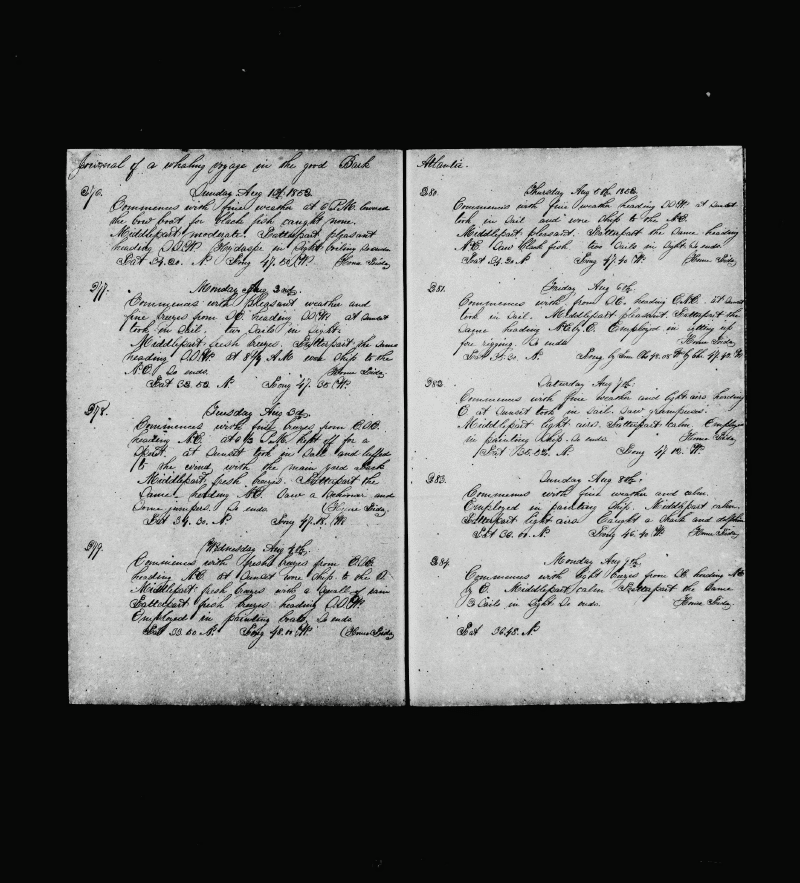 Journal of a whaling voyage in the good Bark
276. Sunday Aug 1st, 1858
Commences with fine weather at 6 P.M. lowered
the bow boat for black fish caught none.
Middlepart moderate. Latterpart pleasant
heading S.S.W. in sight boiling So ends
Lat 34.20. N Long 47.52 W. (Home Side)
277. Monday Aug 2nd.
Commences with pleasant weather and
fine breezes from heading S.W. at sunset
took in sail. two Sails in Sight.
Middlepart fresh breezes. Latterpart the same
heading S.S.W. at 8½ A.M wore ship to the
N.E. So ends. (Home Side)
Lat 33.52. N Long 47.35. W.
278. Tuesday Aug 3rd.
Commences with fine breezes from E.S.E.
heading N.E. at P.M. kept off for a
at sunset took in sail and luffed
to the wind with the main yard back
Middlepart fresh breezes. Latterpart the
same heading N.E. Saw a Schooner and
some jumpers. So ends (Home Side)
Lat 34.30. N Long 47. W.
279. Wednesday Aug 4th.
Commences with fresh breezes from E.S.E.
heading N.E. at sunset wore ship to the S.
Middlepart fresh breezes with a squall of rain
Latterpart fresh breezes heading S.S.W.
Employed in painting boats. So ends
Lat 33.50 N. Long 48. W. (Home Side)
Atlantic.
280. Thursday Aug 5th, 1858.
Commences with fine weather heading S.S.W at sunset
took in sail and wore ship to the N.E.
Middlepart pleasant. Latterpart the same heading
N.E. Saw black fish. two sails in sight. So ends
Lat 34.30. N Long 47.40. W. (Home Side)
281. Friday Aug 6th.
Commences with from S.E. heading at sunset
took in sail. Middlepart pleasant. Latterpart the
same heading N.E. by E. Employed in sitting up
fore rigging. So ends (Home Side)
Lat 34.30. N Long by
282. Saturday Aug 7th.
Commences with fine weather and light airs heading
E at sunset took in sail. Saw grampuses.
Middlepart light airs. Latterpart calm. Employed
in painting ship. So ends. (Home Side)
Lat 35. N. Long 47. W.
283. Sunday Aug 8th,
Commences with fine weather and calm.
Employed in painting ship. Middlepart calm.
Latterpart light airs Caught a shark and dolphin
Lat 36. N. Long 46.40 W. (Home Side)
284. Monday Aug 9th.
Commences with light breezes from S.E. heading N.E.
by E. Middlepart calm Latterpart the same
3 Sails in sight So ends. (Home Side)
Lat 36.48. N